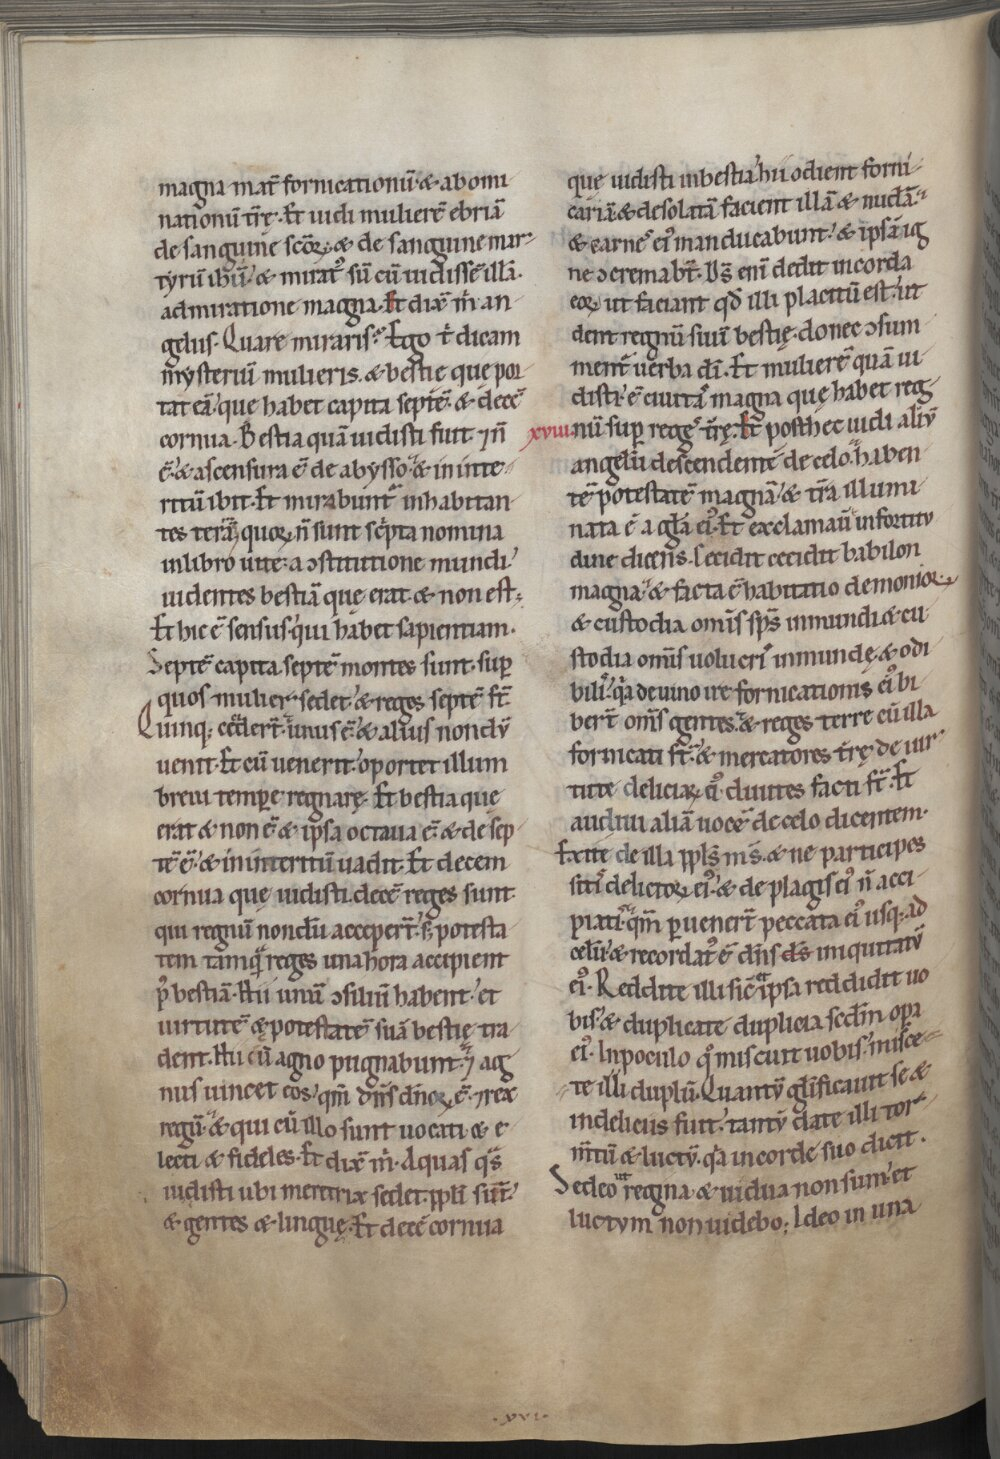 magna mat̄ fornicationū· & abomi
nationū t̄rę· Et uidi mulierē ebriā
de sanguine sc̄oꝝ· & de sanguine mar-
tyrū ih̄u· & mirat᷒ sū cū uidissē illā·
admiratione magna· Et dix̄ m̄ an
gelus· Quare miraris? Ego t̄ dicam
mysteriū mulieris· & bestie que por
tat eā· que habet capita septē· & decē
cornua· Bestia quā uidisti fuit ⁊ n̄
ē· & ascensura ē de abysso· & in inte-
ritū ibit· Et mirabunt᷒ inhabitan
tes terā· quoꝝ n̄ sunt sc̄pta nomina
in libro uite· a ɔstitutione mundi·
uidentes bestiā que erat & non est;
Et hic ē sensus· qui habet sapientiam·
Septē capita· septē montes sunt· sup̄
quos mulier sedet· & reges septē s̄t·
Quinq; cecider̄t· unus ē· & alius nondū
uenit· Et cū uenerit· oportet illum
breui temp̄e regnarę· Et bestia que
erat & non ē· & ipsa octaua ē· & de sep
tē ē· & in interitū uadit· Et decem
cornua quę uidisti· decē reges sunt·
qui regnū nondū acceper̄t· s; potesta
tem tāmq̄ reges una hora accipient
p᷒ bestiā· Hii unū ɔsiliū habent· et
uirtutē & potestatē suā bestię tra
dent· Hii cū agno pugnabunt· ⁊ ag
nus uincet eos· qm̄ dn̄s dn̄oꝝ ē· ⁊ rex
regū· & qui cū illo sunt uocati & e-
lecti & fideles· Et dix̄ m̄· Aquas q̄s
uidisti ubi meretrix sedet· ppl̄i sūt·
& gentes & linguę· Et decē cornua
quę uidisti in bestia· hii odient forni-
cariā· & desolatā facient illā & nudā·
& carnē ei᷒ manducabunt· & ipsā ig
ne ɔcremab̄t· D̄s enī dedit in corda
eoꝝ ut faciant qd̄ illi placitū est· ut
dent regnū suū bestię· donec ɔsum
ment᷒ uerba dī· Et mulierē quā ui-
disti· ē ciuitā magna quę habet reg-
xviii nū sup̄ regē t̄rę· Et post hec uidi aliū
angelū descendentē de celo· haben
tē potestatē magnā· & t̄ra illumi
nata ē a gl̄a ei᷒· Et exclamauī in fortitu
dine dicens· Cecidit cecidit babilon
magna· & facta ē habitatio demonioꝝ
& custodia om̄is sp̄s inmundi· & cu
stodia om̄is uolucri᷒ inmundę· & odi
bili᷒· q̄a de uino ire fornicationis ei᷒ bi
bert̄ om̄s gentes· & reges terre cū illa
fornicati s̄t· & mercatores t̄rę de uir-
tute deliciaꝝ ei᷒ diuites facti s̄t· Et
audiui aliā uocē de celo dicentem·
Exite de illa ppl̄s m̄s· & ne participes
siti᷒ delictoꝝ ei᷒· & de plagis ei᷒ n̄ acci
piati᷒· qm̄ p̄uenert̄ peccata ei᷒ usq; ad
celū· & recordat᷒ ē dn̄s iniquitatū
ei᷒· Reddite illi sic̄ & ipsa reddidit uo
bis· & duplicate duplicia scdm̄ opa
ei᷒· In poculo q᷒ miscuit uobis· misce-
te illi duplū· Quantū gl̄ificauit se &
in deliciis fuit· tantū date illi tor-
m̄tū & luctū· q̄a in corde suo dicit·
Sedeo ut regina· & uidua non sum· et
luctum non uidebo; Ideo in una
·xvi·